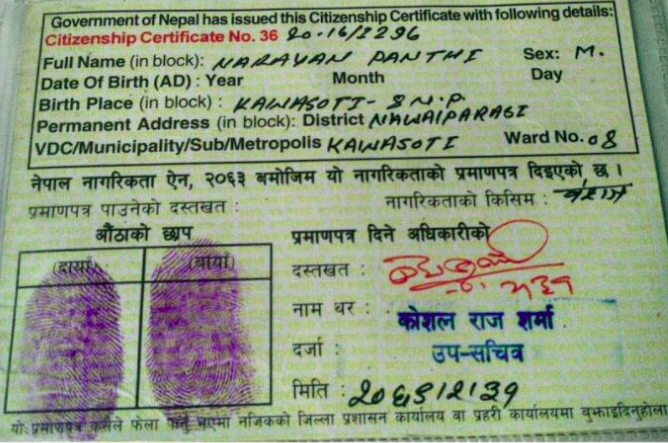 Government of Nepal has issued this Citizenship Certificate with following details:
Citizenship Certificate No. 36
Full Name (in block): NARAYAN PANTHI Sex: M.
Date Of Birth (AD) : Year Month Day
Birth Place (in block) : KAWASOTI - 8 N.P.
Permanent Address (in block): District NAWALPARASI
VDC/Municipality/Sub/Metropolis KAWASOTI Ward No. 08
नेपाल नागरिकता ऐन, २०६३ बमोजिम यो नागरिकताको प्रमाणपत्र दिइएको छ ।
प्रमाणपत्र पाउनेको दस्तखत : नागरिकताको किसिम : वंशज
औंठाको छाप प्रमाणपत्र दिने अधिकारीको
(दायाँ) (बायाँ) दस्तखत :
नाम थर : कोशल राज शर्मा
दर्जा : उप-सचिव
मिति :
यो प्रमाणपत्र कसैले फेला पारी नजिकको जिल्ला प्रशासन कार्यालय वा प्रहरी कार्यालयमा बुझाइदिनुहोला